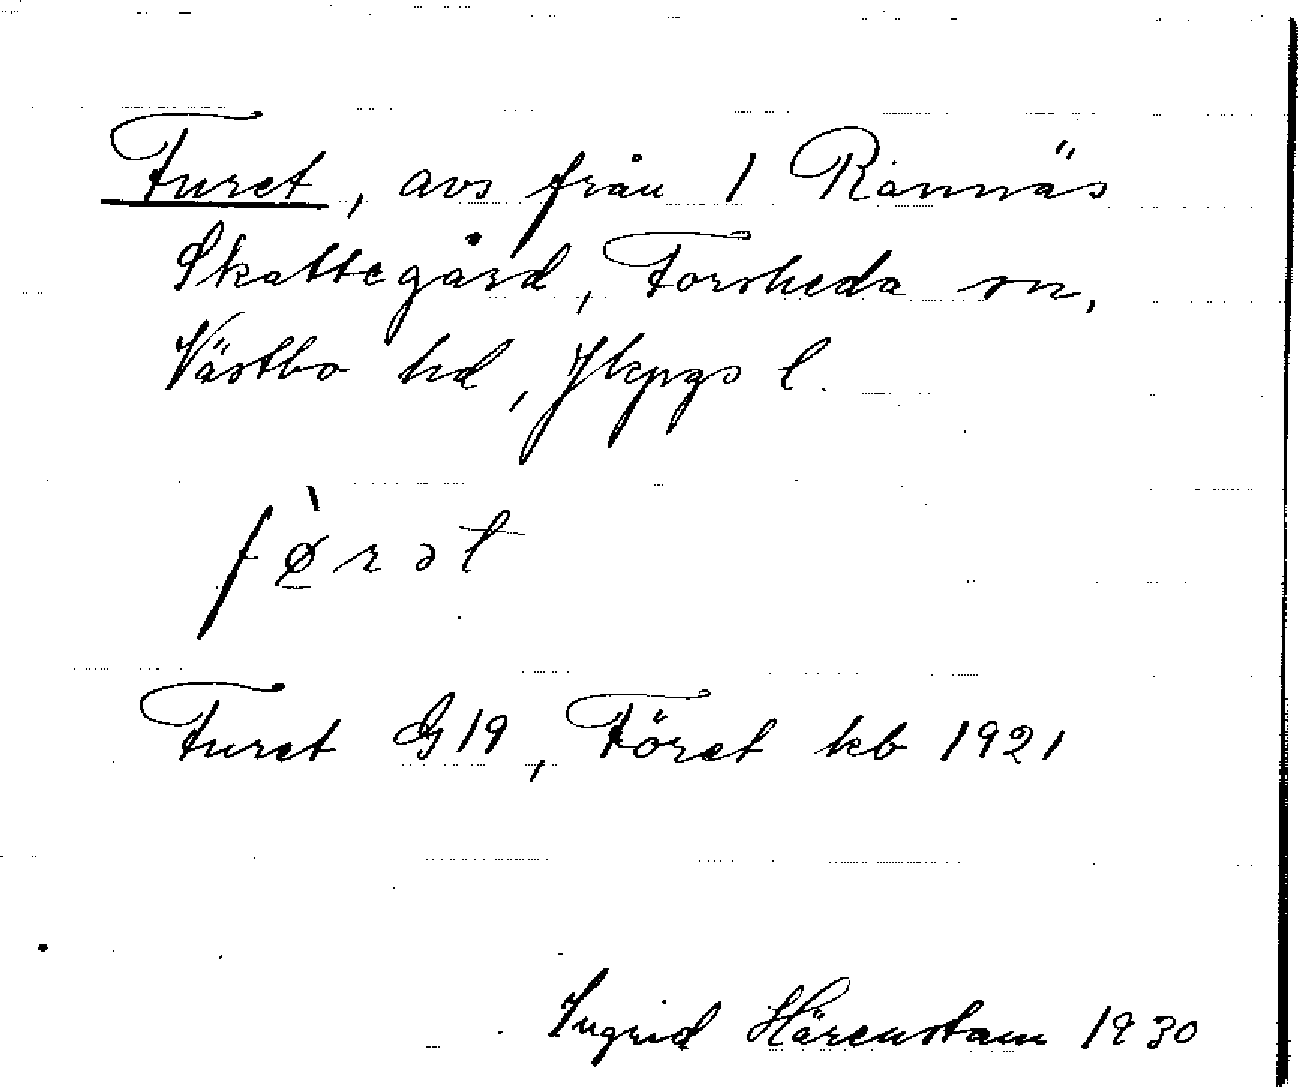 Furet, avs från 1 Rannäs
Skattegård, Forsheda sn,
Västbo hd, Jkpgs l.
fø̀rət
Furet G19, Föret kb 1921
Ingrid Härenstam 1930